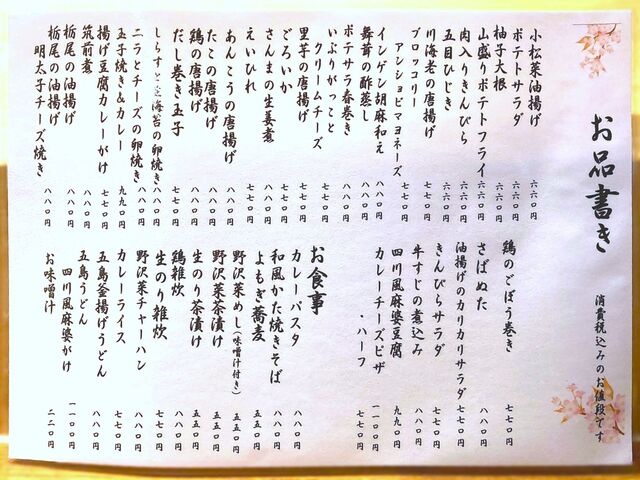 お品書き
消費税込みのお値段です
小松菜油揚げ 六六〇円
ポテトサラダ 六六〇円
柚子大根 六六〇円
山盛りポテトフライ 六六〇円
肉入りきんぴら 六六〇円
五目ひじき 六六〇円
川海老の唐揚げ 七七〇円
ブロッコリー
アンショビマヨネーズ 七七〇円
インゲン胡麻和え 八八〇円
舞茸の酢蒸し 八八〇円
ポテサラ春巻き 八八〇円
いぶりがっこと
クリームチーズ 七七〇円
里芋の唐揚げ 七七〇円
ごろいか 七七〇円
さんまの生姜煮 七七〇円
えいひれ 七七〇円
あんこうの唐揚げ 八八〇円
たこの唐揚げ 八八〇円
鶏の唐揚げ 八八〇円
だし巻き玉子 七七〇円
しらすと 海苔の卵焼き 八八〇円
ニラとチーズの卵焼き 八八〇円
玉子焼き&カレー 九九〇円
揚げ豆腐カレーがけ 七七〇円
筑前煮 八八〇円
栃尾の油揚げ 八八〇円
栃尾の油揚げ
明太子チーズ焼き 八八〇円
鶏のごぼう巻き 七七〇円
さばぬた 八八〇円
油揚げのカリカリサラダ 七七〇円
きんぴらサラダ 七七〇円
牛すじの煮込み 八八〇円
四川風麻婆豆腐 九九〇円
カレーチーズピザ 一一〇〇円
・ハーフ 七七〇円
お食事
カレーパスタ 八八〇円
和風かた焼きそば 八八〇円
よもぎ蕎麦 五五〇円
野沢菜めし(味噌汁付き) 五五〇円
野沢菜茶漬け 五五〇円
生のり茶漬け 五五〇円
鶏雑炊 八八〇円
生のり雑炊 七七〇円
野沢菜チャーハン 七七〇円
カレーライス 七七〇円
五島釜揚げうどん 八八〇円
五島うどん
四川風麻婆がけ 一一〇〇円
お味噌汁 二二〇円